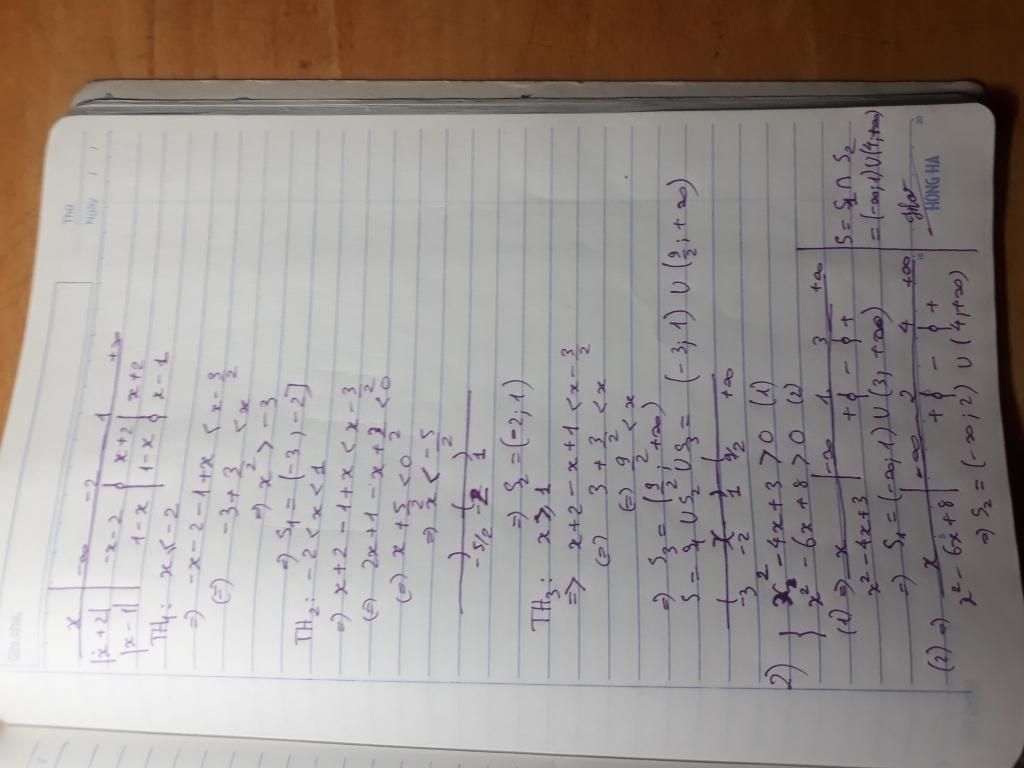 Thứ
Ngày
x | -∞ -2 1 +∞
|x+2| | -x-2 0 x+2 | x+2
|x-1| | 1-x | 1-x 0 x-1
TH1: x ≤ -2
⇒ -x-2-1+x < x-3/2
(=) -3+3/2 < x
⇒ x > -3
⇒ S1 = (-3,-2]
TH2: -2 < x < 1
⇒ x+2-1+x < x-3/2
(=) 2x+1-x+3/2 < 0
(=) x+5/2 < 0
⇒ x < -5/2
-5/2 -2 1
⇒ S2 = (-2;1)
TH3: x ≥ 1
⇒ x+2-x+1 < x-3/2
(=) 3+3/2 < x
(=) 9/2 < x
⇒ S3 = (9/2; +∞)
S = S1 ∪ S2 ∪ S3 = (-3;1) ∪ (9/2; +∞)
-3 -2 1 9/2 +∞
2) { x²-4x+3 > 0 (1)
x²-6x+8 > 0 (2)
(1) ⇒ x | -∞ 1 3 +∞
x²-4x+3 | + 0 - 0 +
⇒ S1 = (-∞,1) ∪ (3,+∞)
(2) ⇒ x | -∞ 2 4 +∞
x²-6x+8 | + 0 - 0 +
⇒ S2 = (-∞;2) ∪ (4,+∞)
S = S1 ∩ S2
= (-∞;1) ∪ (4,+∞)
HONG HA